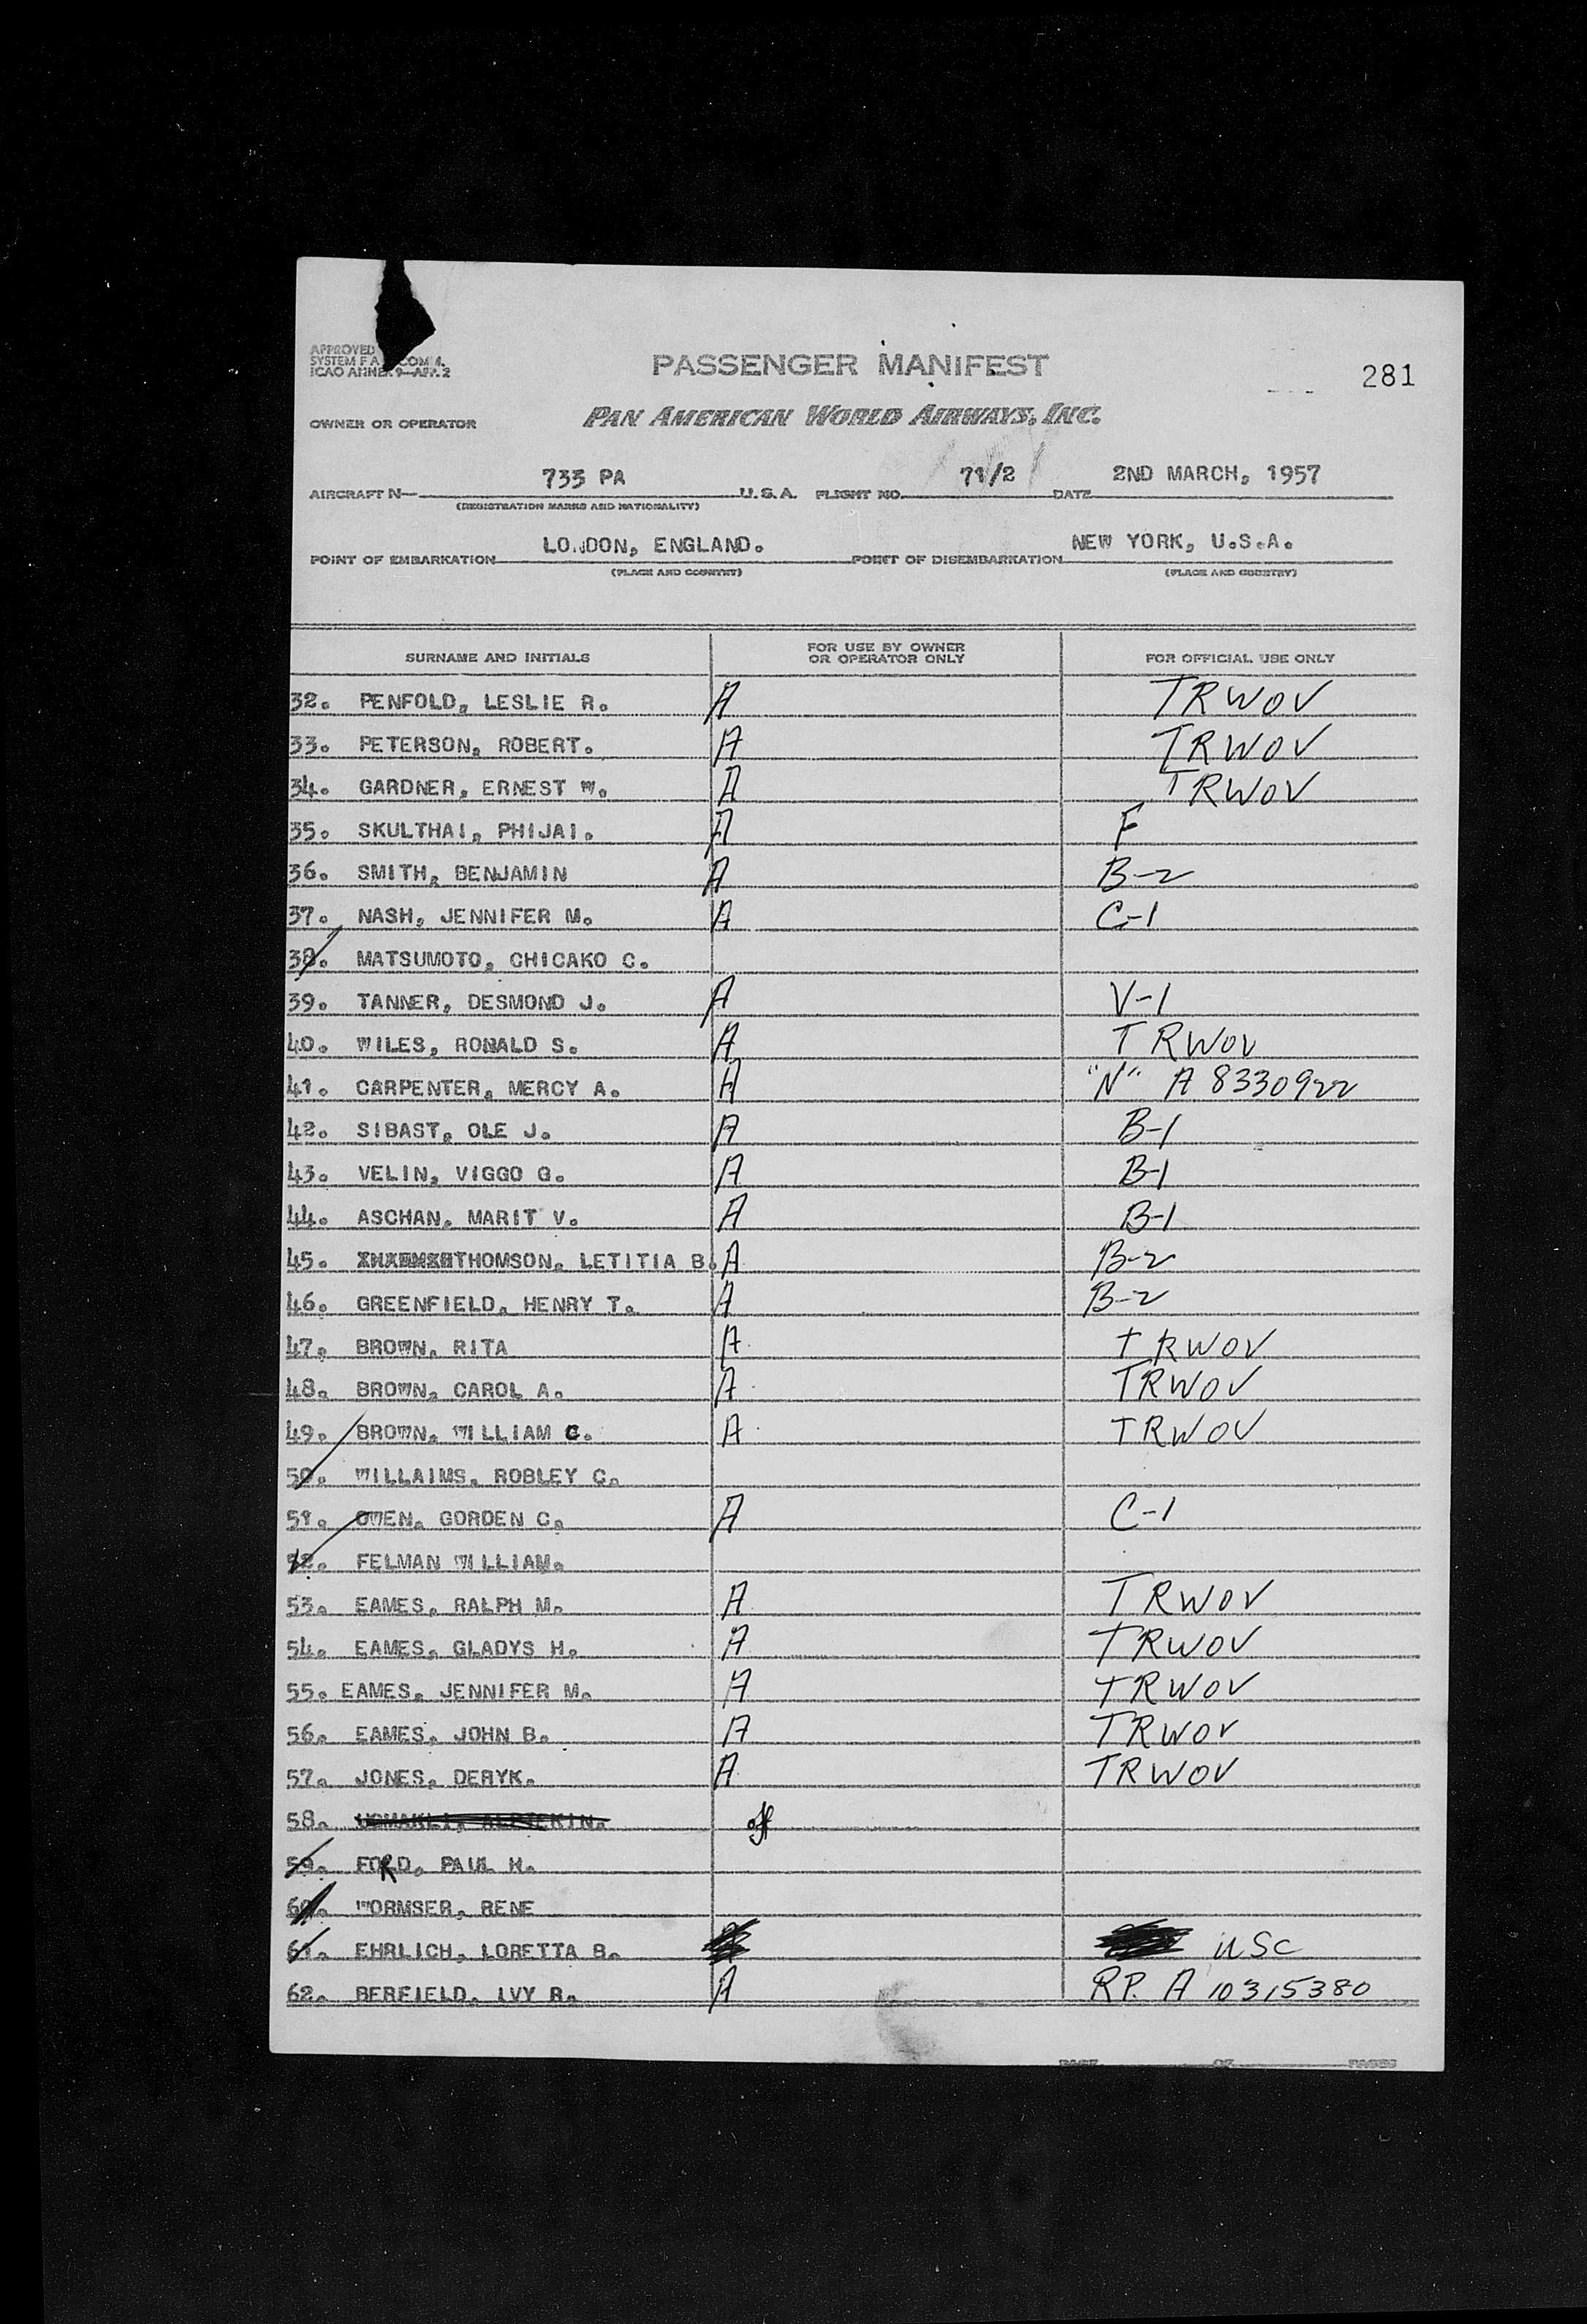 281
APPROVED
SYSTEM F A COM 4.
ICAO ANNEX 9—APP. 2
PASSENGER MANIFEST
OWNER OR OPERATOR PAN AMERICAN WORLD AIRWAYS, INC.
AIRCRAFT N— 733 PA U.S.A. FLIGHT NO. 71/2 DATE 2ND MARCH, 1957
(REGISTRATION MARKS AND NATIONALITY)
POINT OF EMBARKATION LONDON, ENGLAND. POINT OF DISEMBARKATION NEW YORK, U.S.A.
(PLACE AND COUNTRY) (PLACE AND COUNTRY)
SURNAME AND INITIALS FOR USE BY OWNER OR OPERATOR ONLY FOR OFFICIAL USE ONLY
32. PENFOLD, LESLIE R. A TRWOV
33. PETERSON, ROBERT. A TRWOV
34. GARDNER, ERNEST W. A TRWOV
35. SKULTHAI, PHIJAI. A F
36. SMITH, BENJAMIN A B-2
37. NASH, JENNIFER M. A C-1
38. MATSUMOTO, CHICAKO C.
39. TANNER, DESMOND J. A V-1
40. WILES, RONALD S. A TRWOV
41. CARPENTER, MERCY A. A "N" A 8330922
42. SIBAST, OLE J. A B-1
43. VELIN, VIGGO G. A B-1
44. ASCHAN, MARIT V. A B-1
45. THOMSON, LETITIA B. A B-2
46. GREENFIELD, HENRY T. A B-2
47. BROWN, RITA A TRWOV
48. BROWN, CAROL A. A TRWOV
49. BROWN, WILLIAM C. A TRWOV
50. WILLAIMS, ROBLEY C.
51. OWEN, GORDEN C. A C-1
52. FELMAN WILLIAM.
53. EAMES, RALPH M. A TRWOV
54. EAMES, GLADYS H. A TRWOV
55. EAMES, JENNIFER M. A TRWOV
56. EAMES, JOHN B. A TRWOV
57. JONES, DERYK. A TRWOV
58. off
59. FORD, PAUL H.
60. WORMSER, RENE
61. EHRLICH, LORETTA B. USC
62. BERFIELD, IVY R. A RP. A 10315380
PAGE OF PAGES